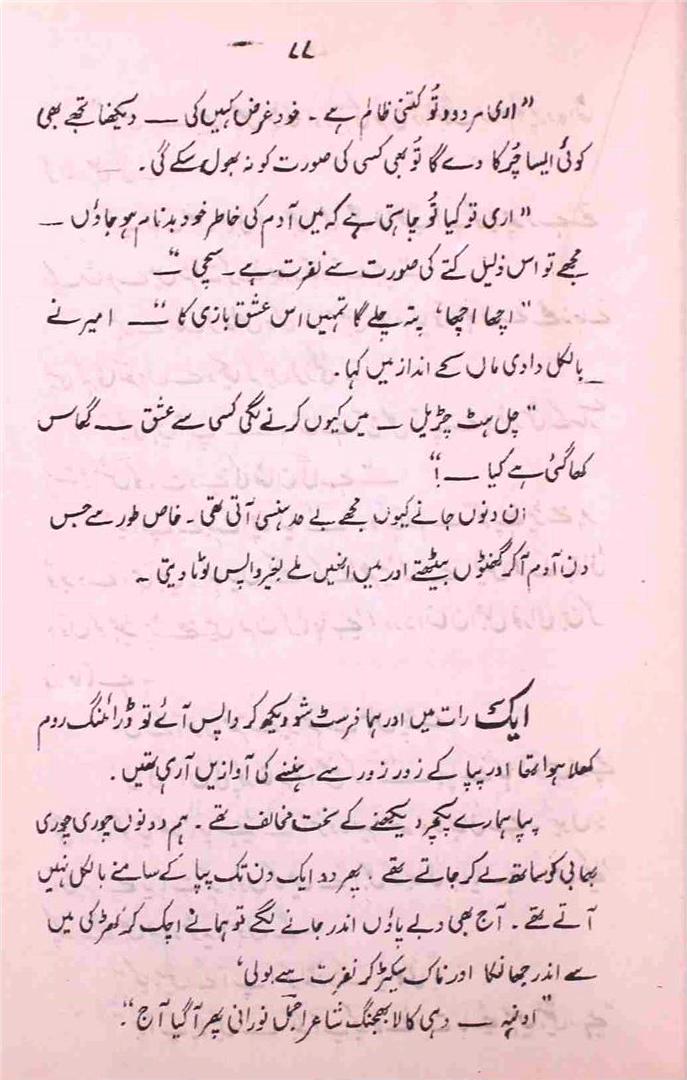 ۷۷
”اری مردود تُو کتنی ظالم ہے ۔ خود غرض کہیں کی ــــ دیکھنا تجھے بھی
کوئی ایسا چُرکا دے گا تُو بھی کسی کی صورت کو نہ بھول سکے گی ۔
”اری تو کیا تُو چاہتی ہے کہ میں آدم کی خاطر خود بدنام ہو جاؤں ــــ
مجھے تو اس ذلیل کتے کی صورت سے نفرت ہے ۔ سچی ــــ“
”اچھا اچھا، پتہ چلے گا تمہیں اس عشق بازی کا ــــ“ امیر نے
بالکل دادی ماں کے انداز میں کہا ۔
”چل ہٹ چڑیل ــــ میں کیوں کرنے لگی کسی سے عشق ــــ گھاس
کھا گئی ہے کیا ــــ !“
ان دنوں جانے کیوں مجھے بے حد ہنسی آتی تھی ۔ خاص طور سے جس
دن آدم آکر گھنٹوں بیٹھتے اور میں انھیں ملے بغیر واپس لوٹا دیتی ۔
ایک رات میں اور ہما فرسٹ شو دیکھ کر واپس آئے تو ڈرائنگ روم
کھلا ہوا تھا اور پپا کے زور زور سے ہنسنے کی آوازیں آرہی تھیں ۔
پپا ہمارے پکچر دیکھنے کے سخت مخالف تھے ۔ ہم دونوں چوری چوری
بھابی کو ساتھ لے کر جاتے تھے ۔ پھر دو ایک دن تک پپا کے سامنے بالکل نہیں
آتے تھے ۔ آج بھی دبے پاؤں اندر جانے لگے تو ہما نے اچک کر کھڑکی میں
سے اندر جھانکا اور ناک سکیڑ کر نفرت سے بولی،
”اونہہ ــــ وہی کالا بھجنگ شاعر اجمل نورانی پھر آگیا آج“ ۔